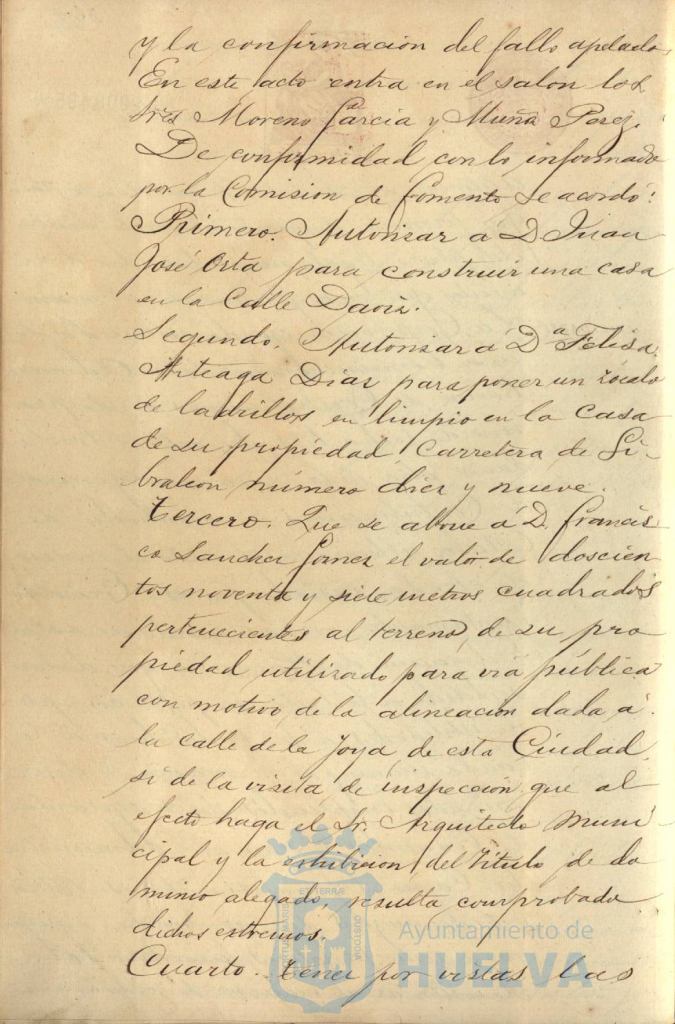 y la confirmación del fallo apelado.
En este acto entra en el salon los
Sres Moreno Garcia y Muñiz Perez.
De conformidad con lo informado
por la Comision de fomento se acordó:
Primero. Autorizar á D Juan
José Orta para construir una casa
en la Calle Daoiz.
Segundo. Autorizar á Dª Felisa
Arteaga Diaz para poner un zócalo
de ladrillos en limpio en la casa
de su propiedad, Carretera de Gi-
braleon número diez y nueve.
Tercero. Que se abone á D. Francis
co Sanchez Gomez el valor de doscien
tos noventa y siete metros cuadrados
pertenecientes al terreno, de su pro
piedad utilizado para via pública
con motivo de la alineacion dada á
la calle de la Joya, de esta Ciudad,
si de la visita de inspección que al
efecto haga el Sr. Arquitecto Muni-
cipal y la exhibicion del título de do
minio alegado, resulta comprobado
dichos extremos.
Cuarto. Tener por vistas las
Ayuntamiento de
HUELVA